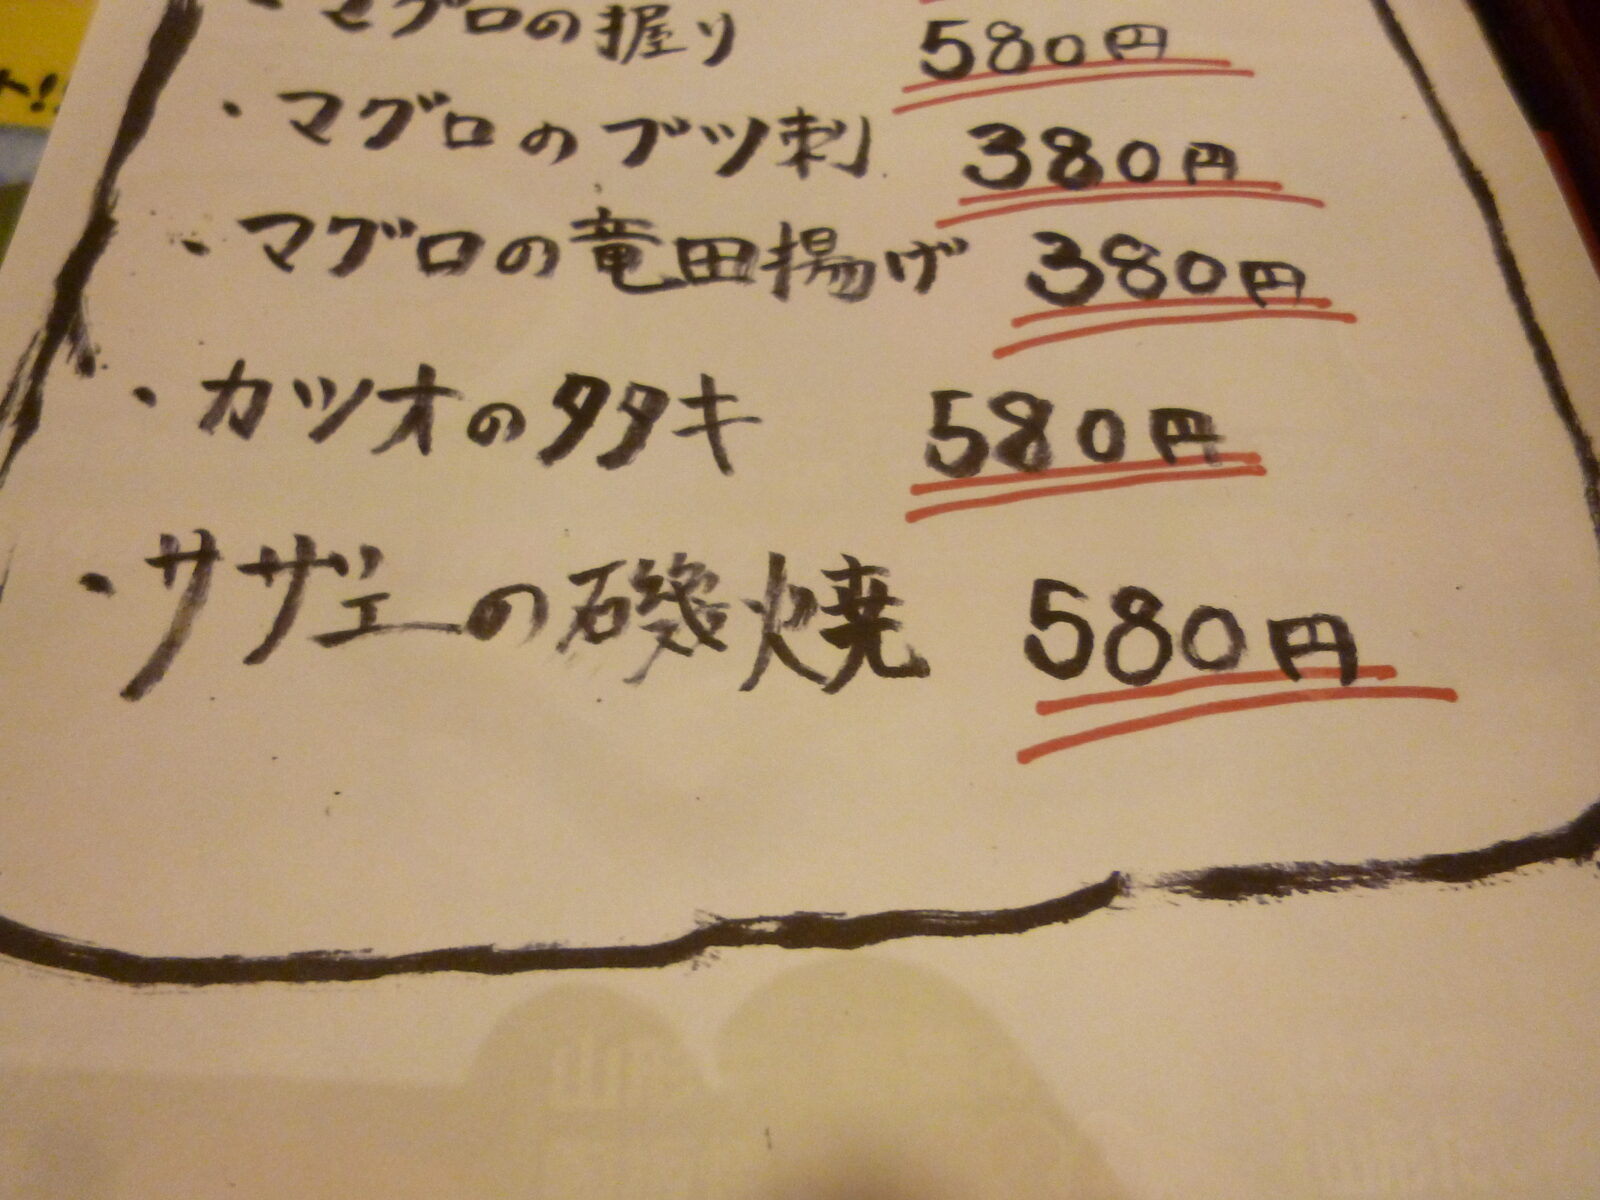 ・マグロの握り 580円
・マグロのブツ刺 380円
・マグロの竜田揚げ 380円
・カツオのタタキ 580円
・サザエの磯焼 580円
ト!!